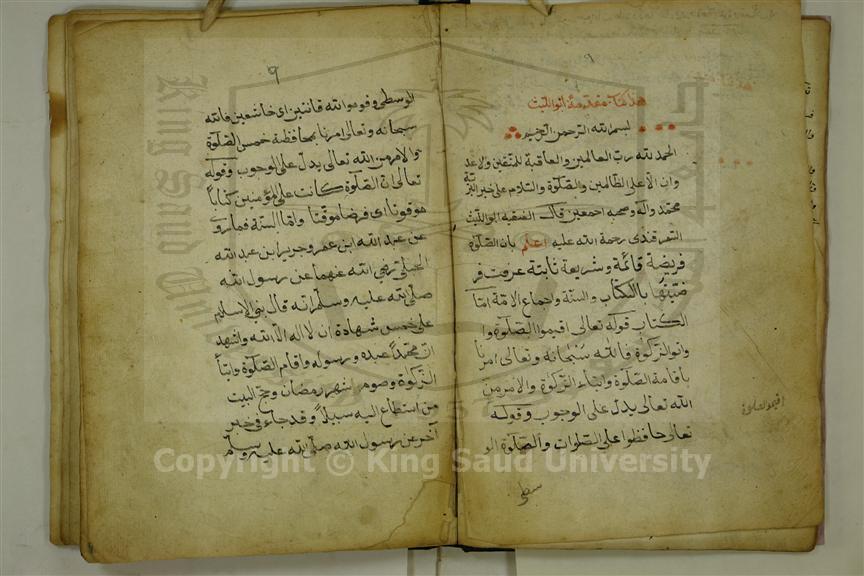 هذا كتاب مقدمة ابو الليث
بسم الله الرحمن الرحيم
الحمد لله رب العالمين والعاقبة للمتقين ولا عد
وان الا على الظالمين والصلوة والسلام على خير البرية
محمد وآله وصحبه اجمعين قال الفقيه ابو الليث
السمرقندى رحمة الله عليه اعلم بان الصلوة
فريضة قائمة وشريعة ثابتة عرفت فر
ضيتها بالكتاب والسنة واجماع الامة اما
الكتاب قوله تعالى اقيموا الصلوة وا
واتوا الزكوة فالله سبحانه وتعالى امرنا
باقامة الصلوة وايتاء الزكوة والامر من
الله تعالى يدل على الوجوب وقوله
تعالى حافظوا على الصلوات والصلوة الو
سطى
اقيموا الصلوة
٩
الوسطى وقوموا لله قانتين اى خاشعين فالله
سبحانه وتعالى امرنا بمحافظة خمس الصلوة
والامر من الله تعالى يدل على الوجوب وقوله
تعالى ان الصلوة كانت على المؤمنين كتابا
موقوتا اى فرضا موقتا واما السنة فما روى
عن عبد الله ابن عمر وجرير ابن عبد الله
البجلى رضى الله عنهما عن رسول الله
صلى الله عليه وسلم انه قال بنى الاسلام
على خمس شهادة ان لا اله الا الله واشهد
ان محمدا عبده ورسوله واقام الصلوة وايتآ
الزكوة وصوم شهر رمضان وحج البيت
من استطاع اليه سبيلا وقد جاء فى خبر
آخر عن رسول الله صلى الله عليه وسلم
Copyright © King Saud University
King Saud